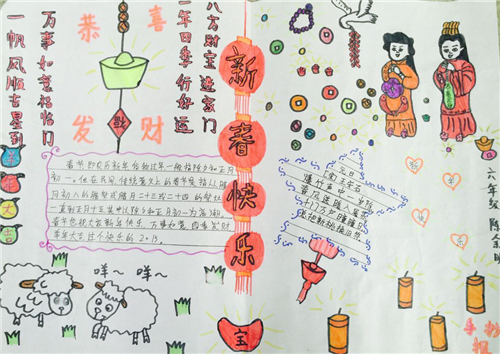 万事如意福临门
一帆风顺吉星到
恭喜
发财
财
八方财宝进家门
一年四季行好运
新春快乐
春节即农历新年俗称过年一般指除夕和正月
初一。但在民间传统意义上的春节是指从腊
月初八的腊祭或腊月二十三或二十四的祭灶
一直到正月十五其中以除夕和正月初一为高潮
元日
宋 王安石
爆竹声中一岁除
春风送暖入屠苏
千门万户曈曈日
总把新桃换旧符
大
吉
咩～咩～
宝
六年级
手抄报